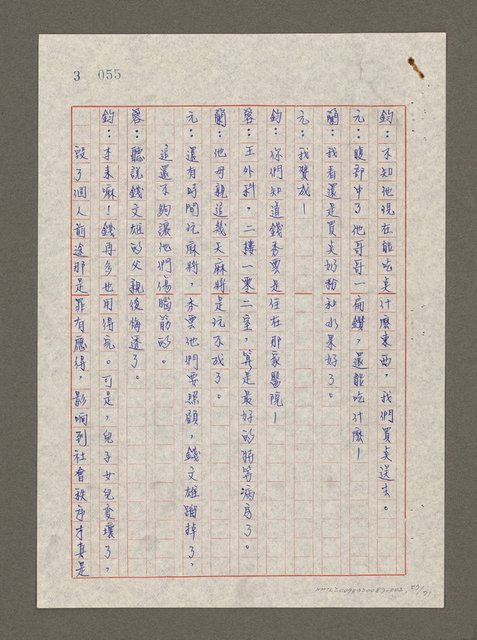 3 055
鈞：不知他現在能吃点什麼東西，我們買点送去。
元：腹部中了他哥哥一扁鑽，還能吃什麼！
蘭：我看還是買点奶粉和水果好了。
元：我贊成！
鈞：你們知道錢秀雲是住在那家醫院！
蓉：王外科，二樓一零二室，算是最好的特等病房了。
蘭：他母親這幾天麻將是玩不成了。
元：還有時間玩麻將，秀雲他們要照顧，錢文雄跑掉了，
這還不夠讓他們傷腦筋的。
蓉：聽說錢文雄的父親後悔透了。
鈞：本來嘛！錢再多也用得完。可是，兒子女兒變壞了，
毀了個人前途那是罪有應得，影响到社會秩序才真是